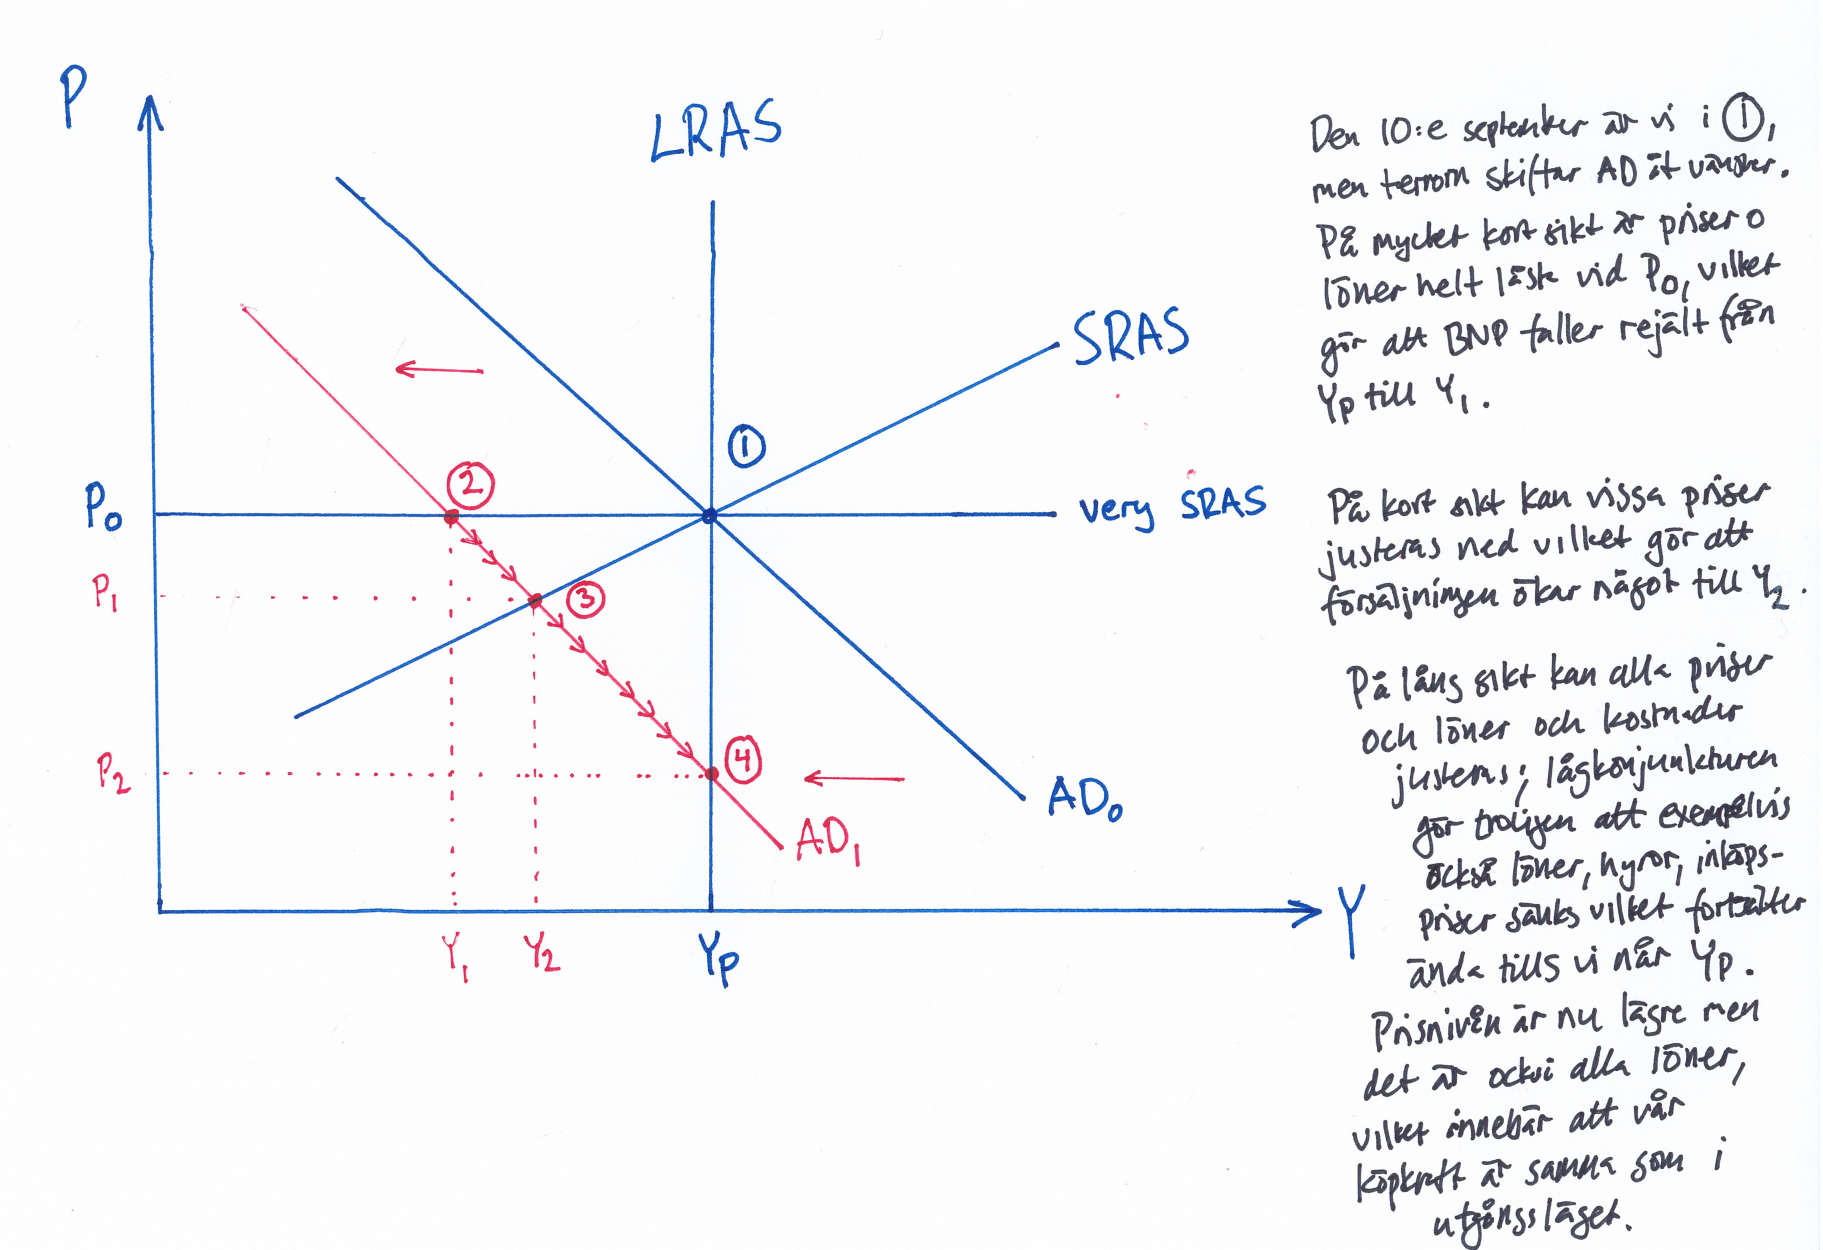 P
LRAS
SRAS
①
②
P₀
very SRAS
P₁
③
P₂
④
AD₀
AD₁
Y
Y₁
Y₂
Yp
Den 10:e september är vi i ①,
men terrorn skiftar AD åt vänster.
På mycket kort sikt är priser o
löner helt låsta vid P₀, vilket
gör att BNP faller rejält från
Yp till Y₁.
På kort sikt kan vissa priser
justeras ned vilket gör att
försäljningen ökar något till Y₂.
På lång sikt kan alla priser
och löner och kostnader
justeras; lågkonjunkturen
gör troligen att exempelvis
också löner, hyror, inköps-
priser sänks vilket fortsätter
ända tills vi når Yp.
Prisnivån är nu lägre men
det är också alla löner,
vilket innebär att vår
köpkraft är samma som i
utgångsläget.